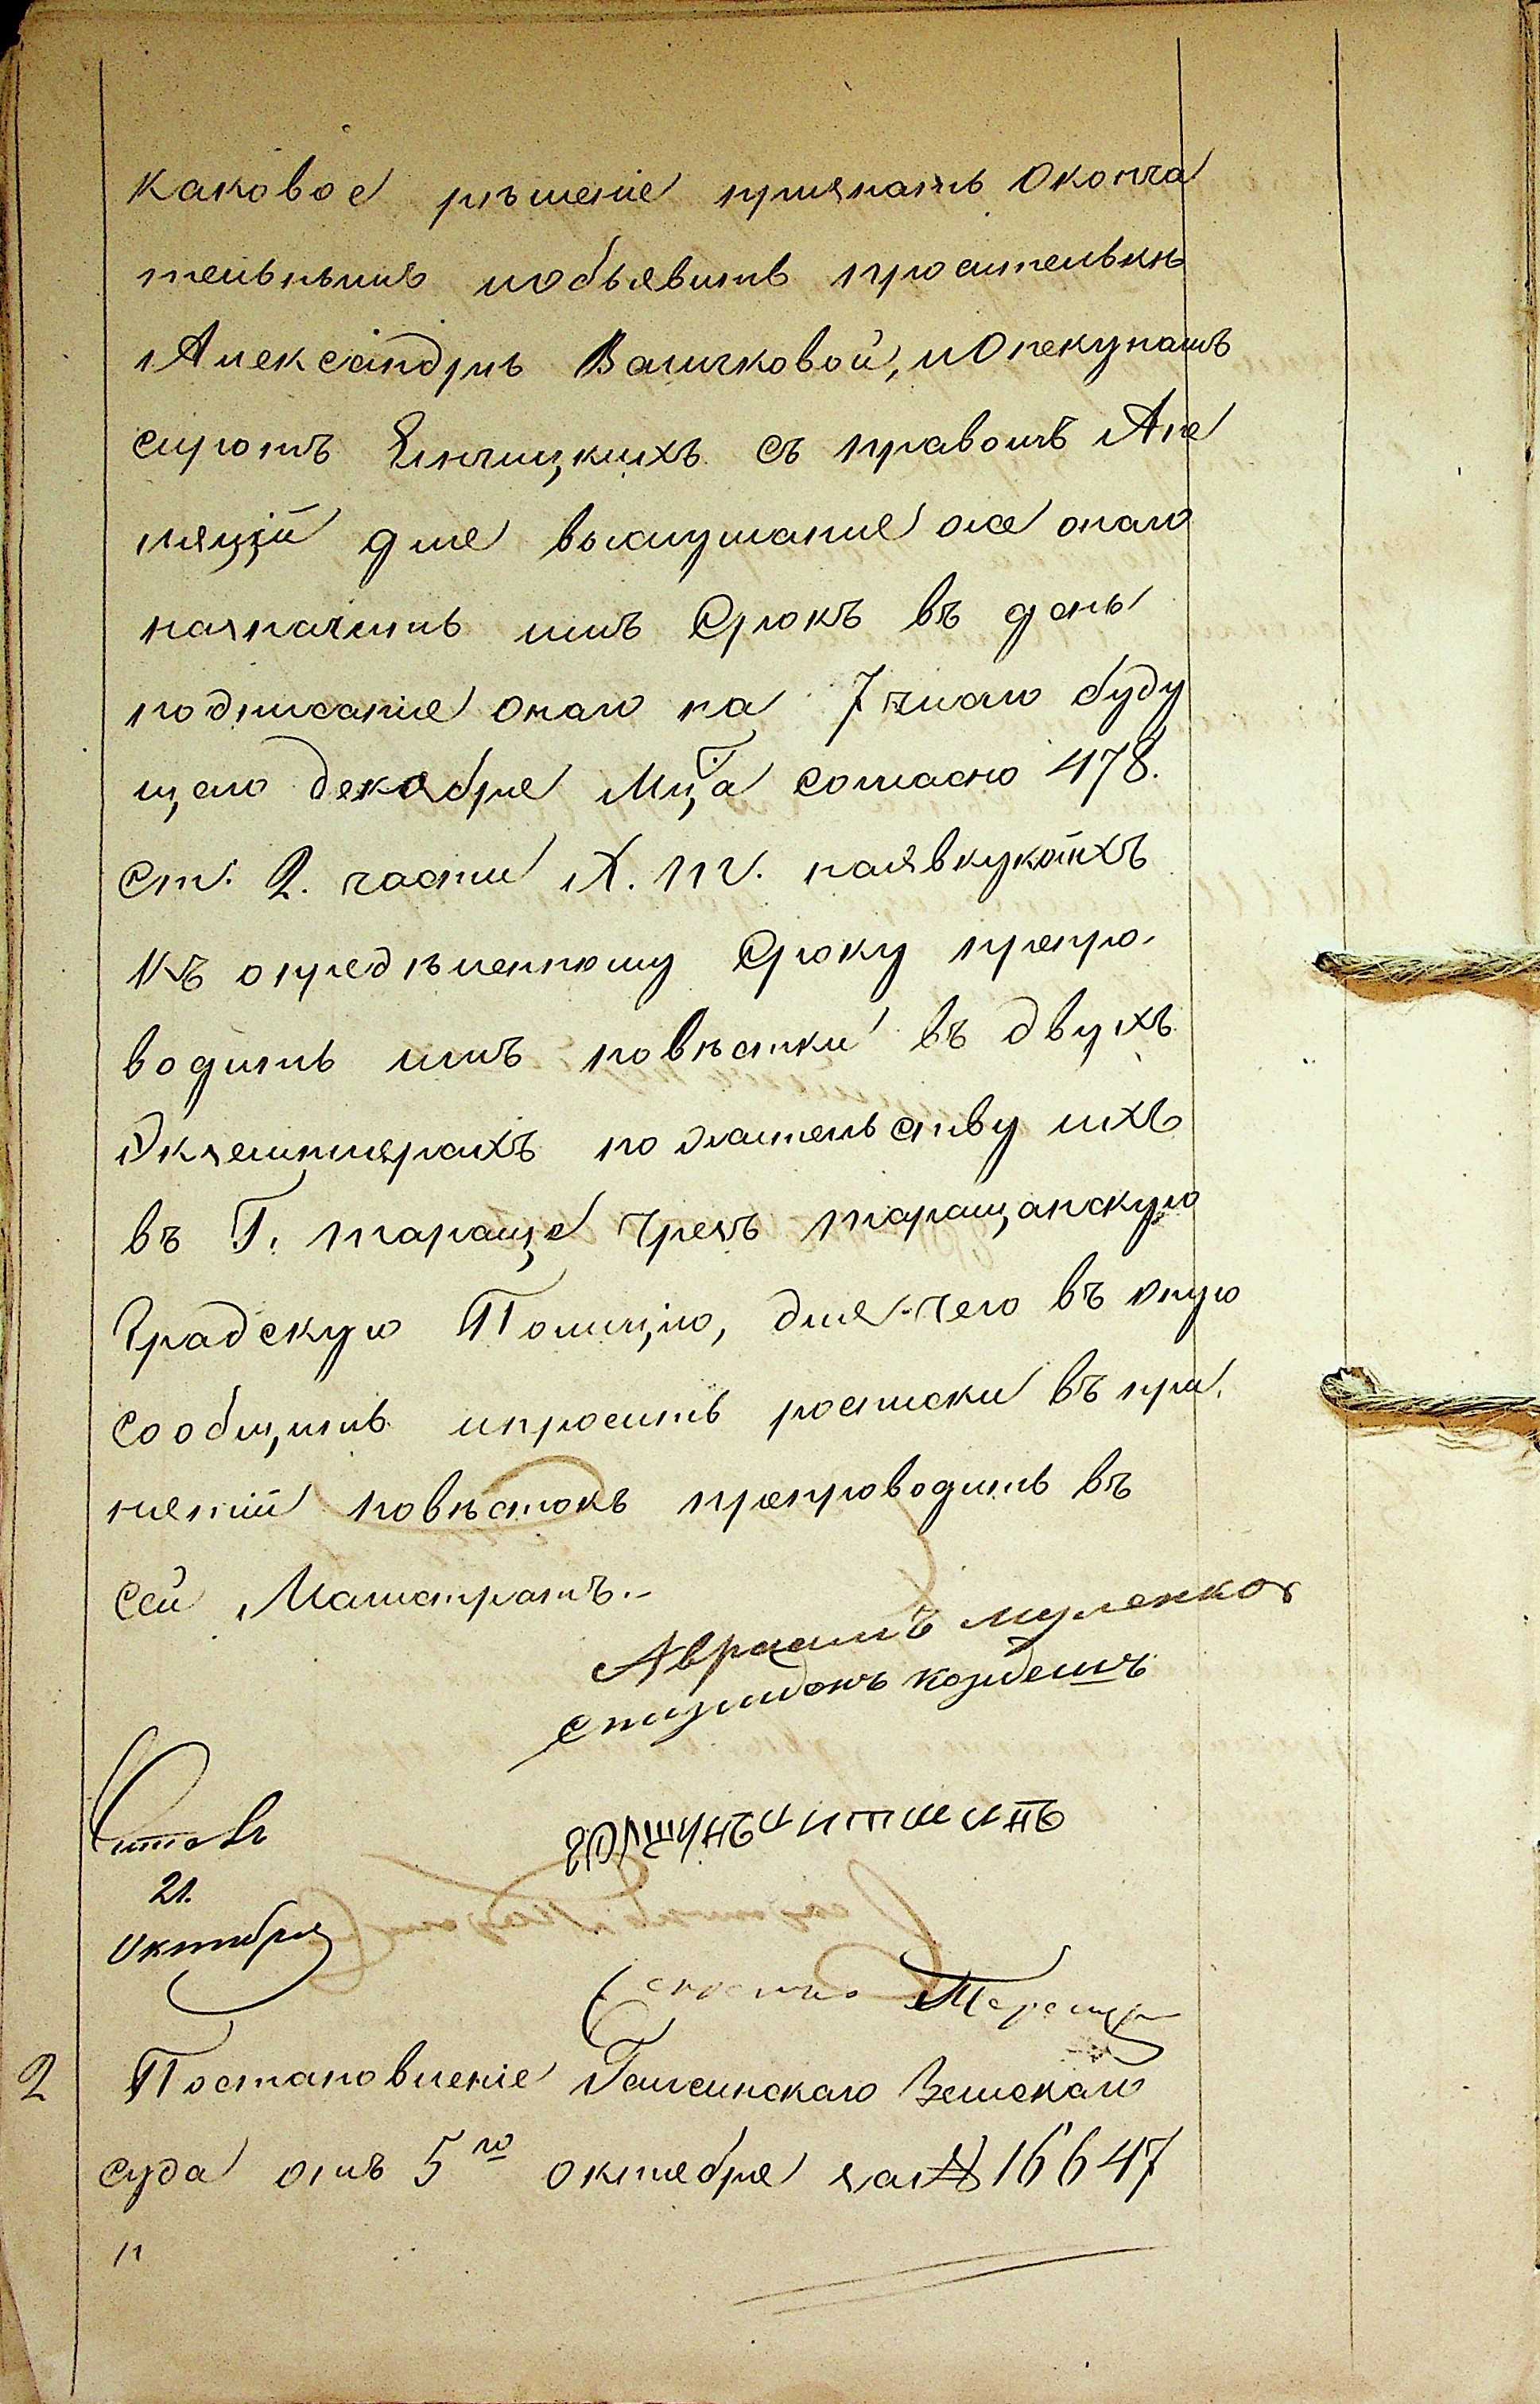 каковое рѣшеніе признать Оконча
тельнымъ иобъявить просительнкѣ
Александрѣ Валичковой, иОпекунамъ
сиротъ Ялнчицкихъ съ правомъ Апе
ляцій для выслушанія оже онаго
назначить имъ Срокъ въ день
подписанія онаго на 7 число буду
щаго декабря Мца согласно 478.
ст. 2. части Х. т. наявкукоихъ
къ опредѣленному Сроку препро-
водить имъ повѣстки въ двухъ
Экземплярахъ по жательству ихъ
въ Г. Тараще чрезъ таращанскую
Градскую Полицію, для чего въ оную
сообщить ипросить росписки въ при-
нятіи повѣстокъ препроводить въ
сей Магистратъ.-
Авраамъ
Спиридонъ
21.
Октября
2 Постановленіе Гайсинскаго Земскаго
суда отъ 5го октября за № 16647
"